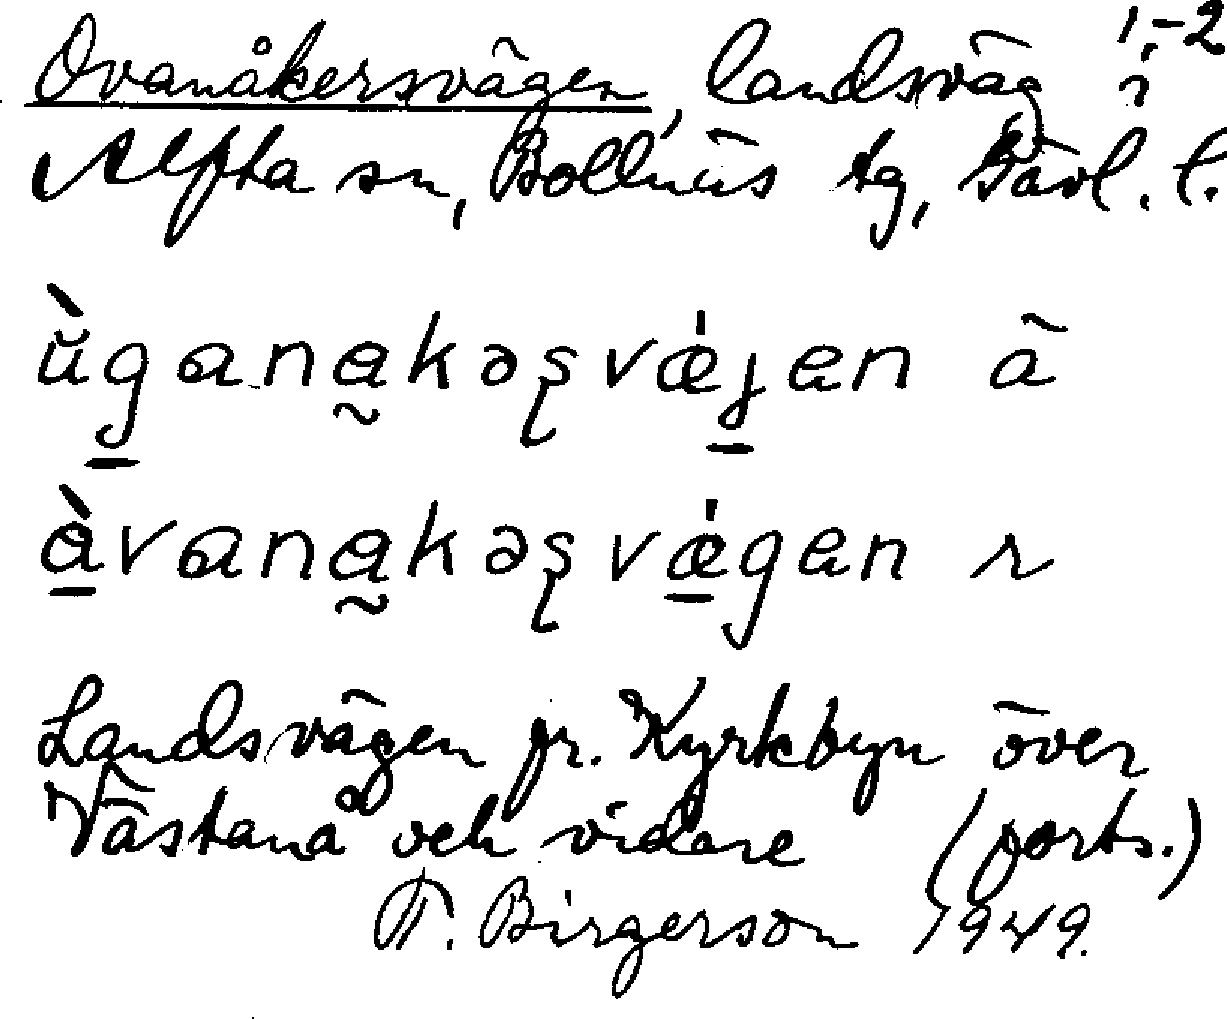 1.-2
Ovanåkersvägen, landsväg i
Alfta sn, Bollnäs tg, Gävl. l.
ù̆gana̰kəʂvǽɟen ä
àvana̰kəʂvǽgen r
Landsvägen fr. Kyrkbyn över
Västanå och vidare (forts.)
T. Birgerson 1949.